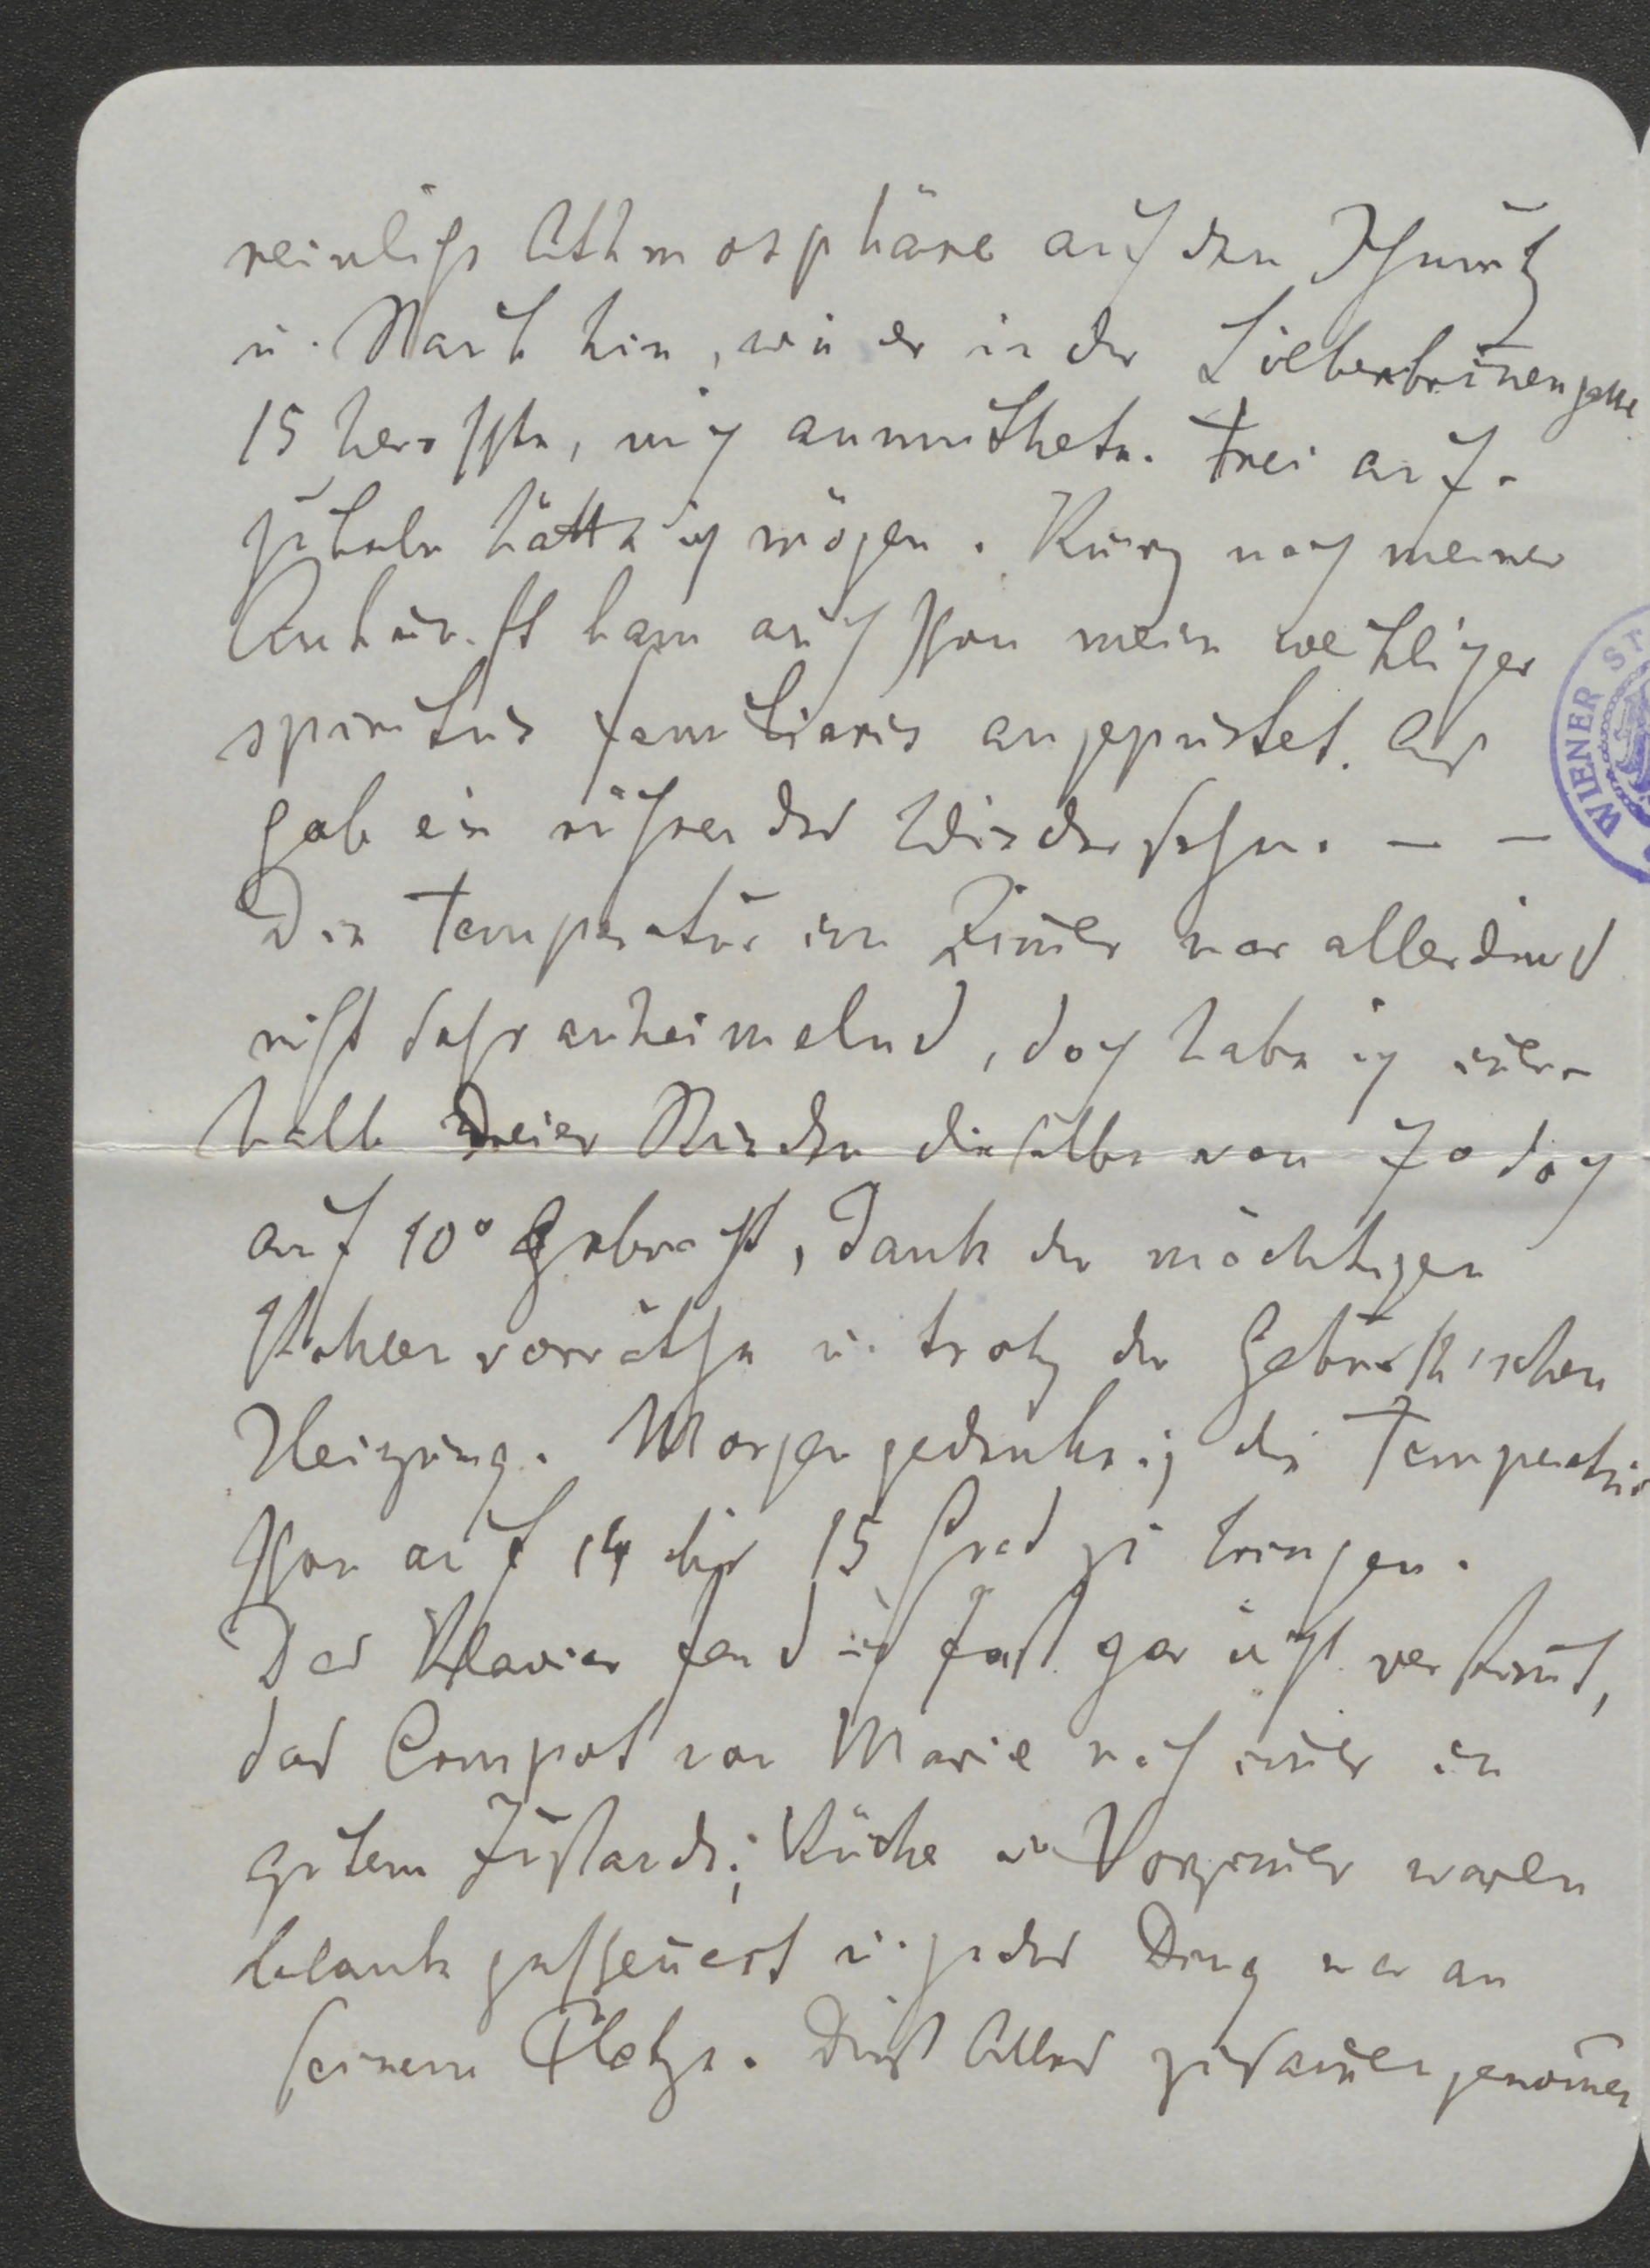 reinliche Athmosphäre auf den Schmutz
u. Staub hin, wie er in der Liebenbrun̅engasse
15 herrschte, mich anmuthete. Frei auf-
jubeln hätte ich mögen. Kurz nach meiner
Ankunft kam auch schon mein weiblicher
spiritus familiaris angepustet. Es
gab ein rührendes Wiedersehn. – –
Die Temperatur im Zim̅er war allerdings
nicht sehr anheimelnd, doch habe ich in̅er-
halb dreier Stunden dieselbe von 7° doch
auf 10° gebracht, Dank der mächtigen
Kohlenvorräthe u. trotz der
Heizung. Morgen gedenke ich die Temperatur
schon auf 14 bis 15 Grad zu bringen.
Das Klavier fand ich fast gar nicht verstim̅t,
das Compot von Marie noch im̅er in
gutem Zustande; Küche u. Vorzim̅er waren
blank gescheuert u. jedes Ding war an
seinem Platze. Dieß Alles zusam̅engenom̅en
WIENER ST